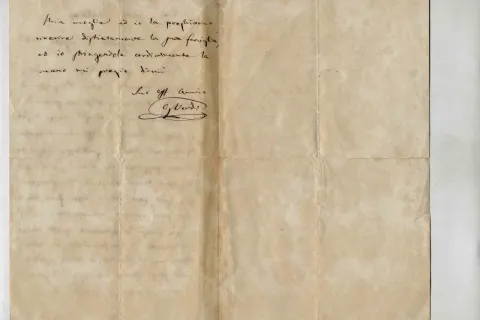 Mia moglie ed io la preghiamo
riverire distintamente la sua famiglia,
ed io stringendole cordialmente la
mano mi pregio dirmi
Suo aff Amico
GVerdi